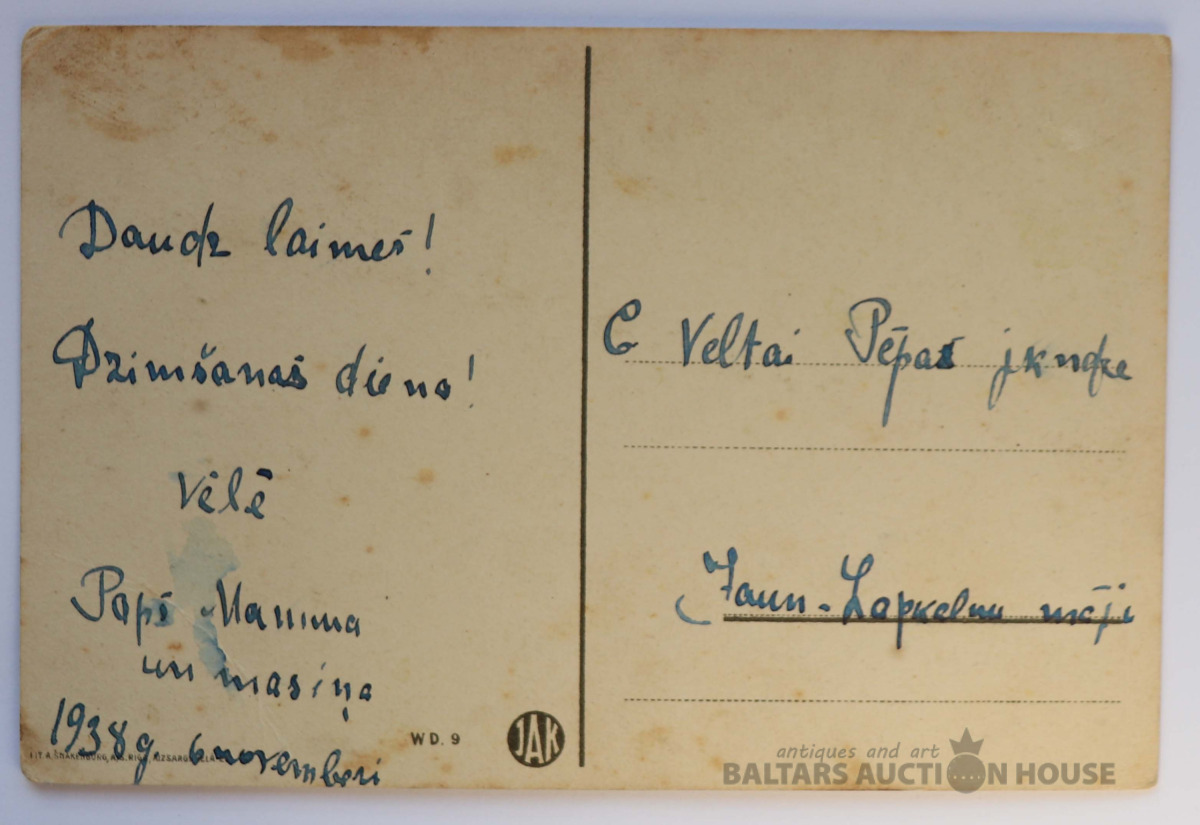 Daudz laimes!
Dzimšanas dienā!
Vēlē
Paps Mamma
un masiņa
1938g. 6 novemberi
WD. 9
JAK
C Veltai Pēpas jkndze
Jaun-Lapkalnu māji
antiques and art
BALTARS AUCTION HOUSE